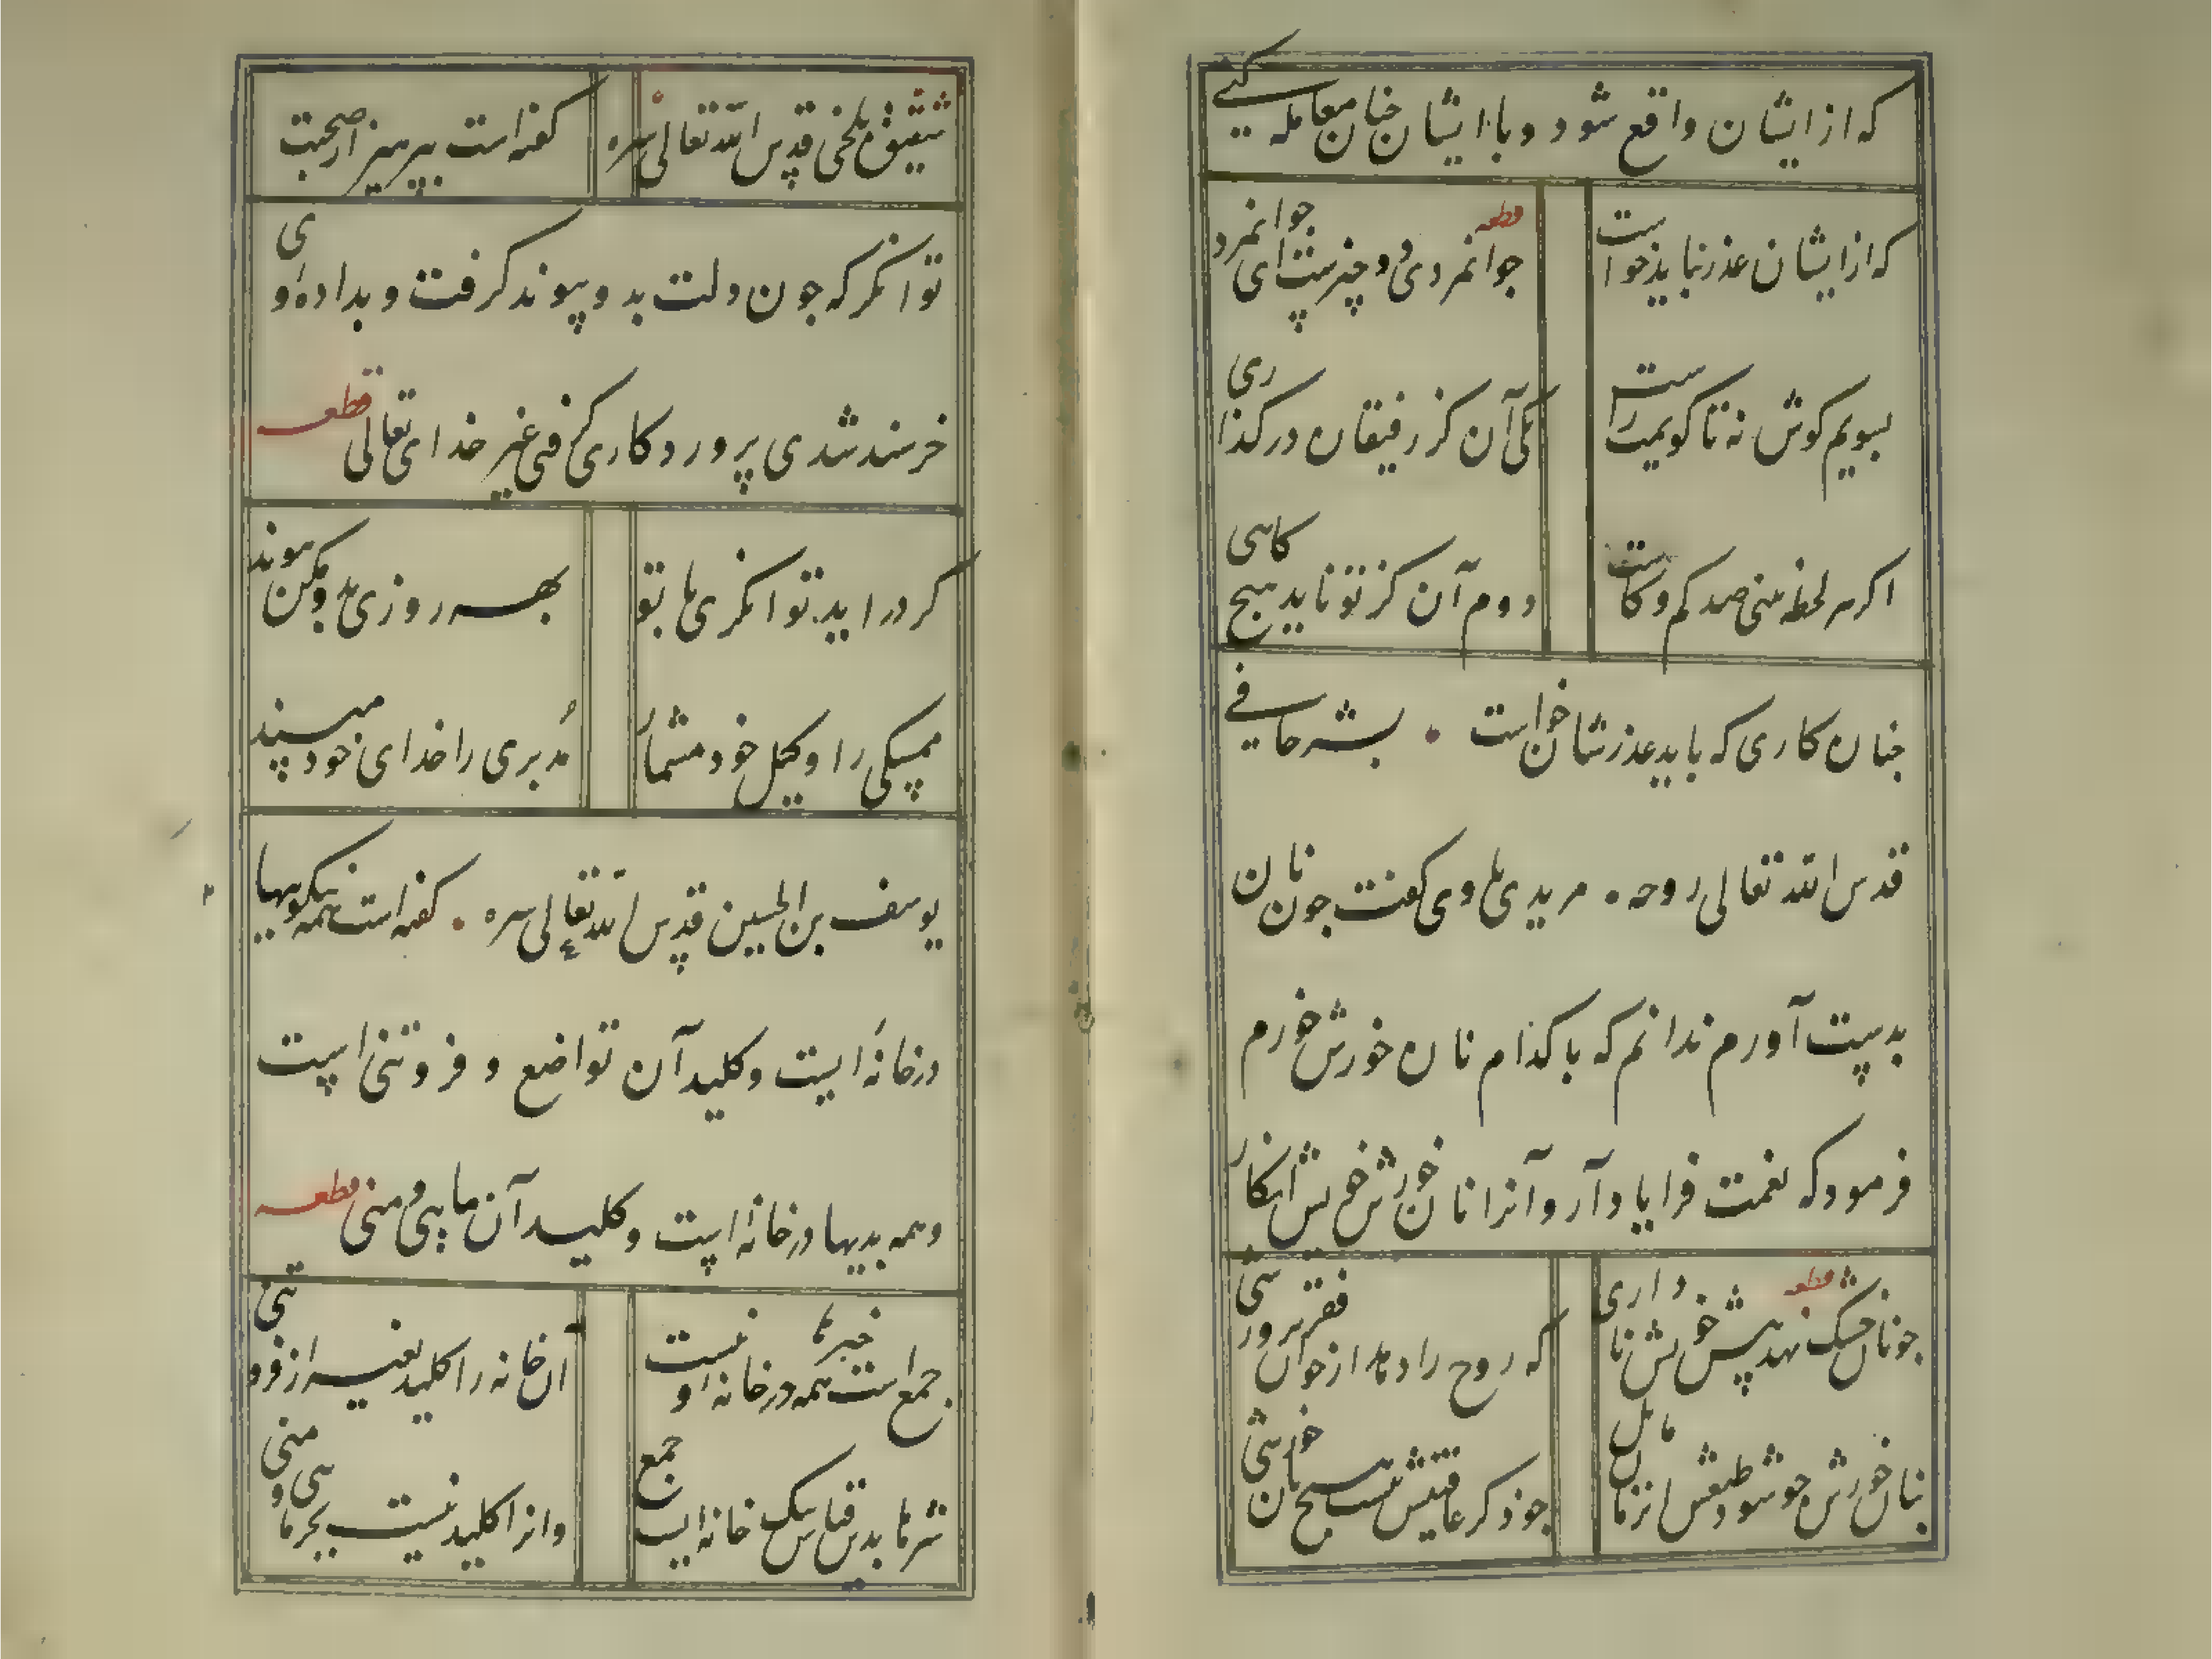 که از ایشان واقع شود و با ایشان جنان معامله کنے
که از ایشان عذر نباید خواست
قطعه
جوانمردی دو چیزست ای جوانمرد
بسویم کوش نه تا کویمت راست
یکی آن کز رفیقان در کذاری
اکر هر لحظه بینی صد کم و کاست
دوم آن کز تو ناید هیج کاهی
جنان کاری که باید عذر شان خواست . بشر حافے
قدس الله تعالی روحه . مریدی با وی کفت جون نان
بدست آورم ندانم که با کدام نان خورش خورم
فرمود که نعمت فرا یاد آر و آنرا نان خورش خویش انکار
قطعه
جو نان خشک نهد پیش خویش ناداری
که روح را دهد از خوان فقر پرورشی
جو ذکر عافیتش نیست هیج نان خورشی
شقیق بلخی قدس الله تعالی سره . کفته است بپرهیز از صحبت
توانکر که جون دلت بدو پیوند کرفت و بداده او
خرسند شدی پروردکاری کرفتی غیر خدای تعالی قطعه
کر درآید توانکری با تو
بهر روزی بدو مکن پیوند
ممسکی را وکیل خود مشمار
مُدبری را خدای خود مپسند
یوسف بن الحسین قدس الله تعالی سره . کفته است همه نیکوییها
در خانهٔ ایست و کلید آن تواضع و فروتنی است
و همه بدیها در خانهٔ است و کلید آن مایی و منی قطعه
جمع است خیرها همه در خانه و نیست
آن خانه را کلید بغیر از فروتنی
شرها بدین قیاس بیک خانه ایست جمع
وانرا کلید نیست بجز مایی و منی